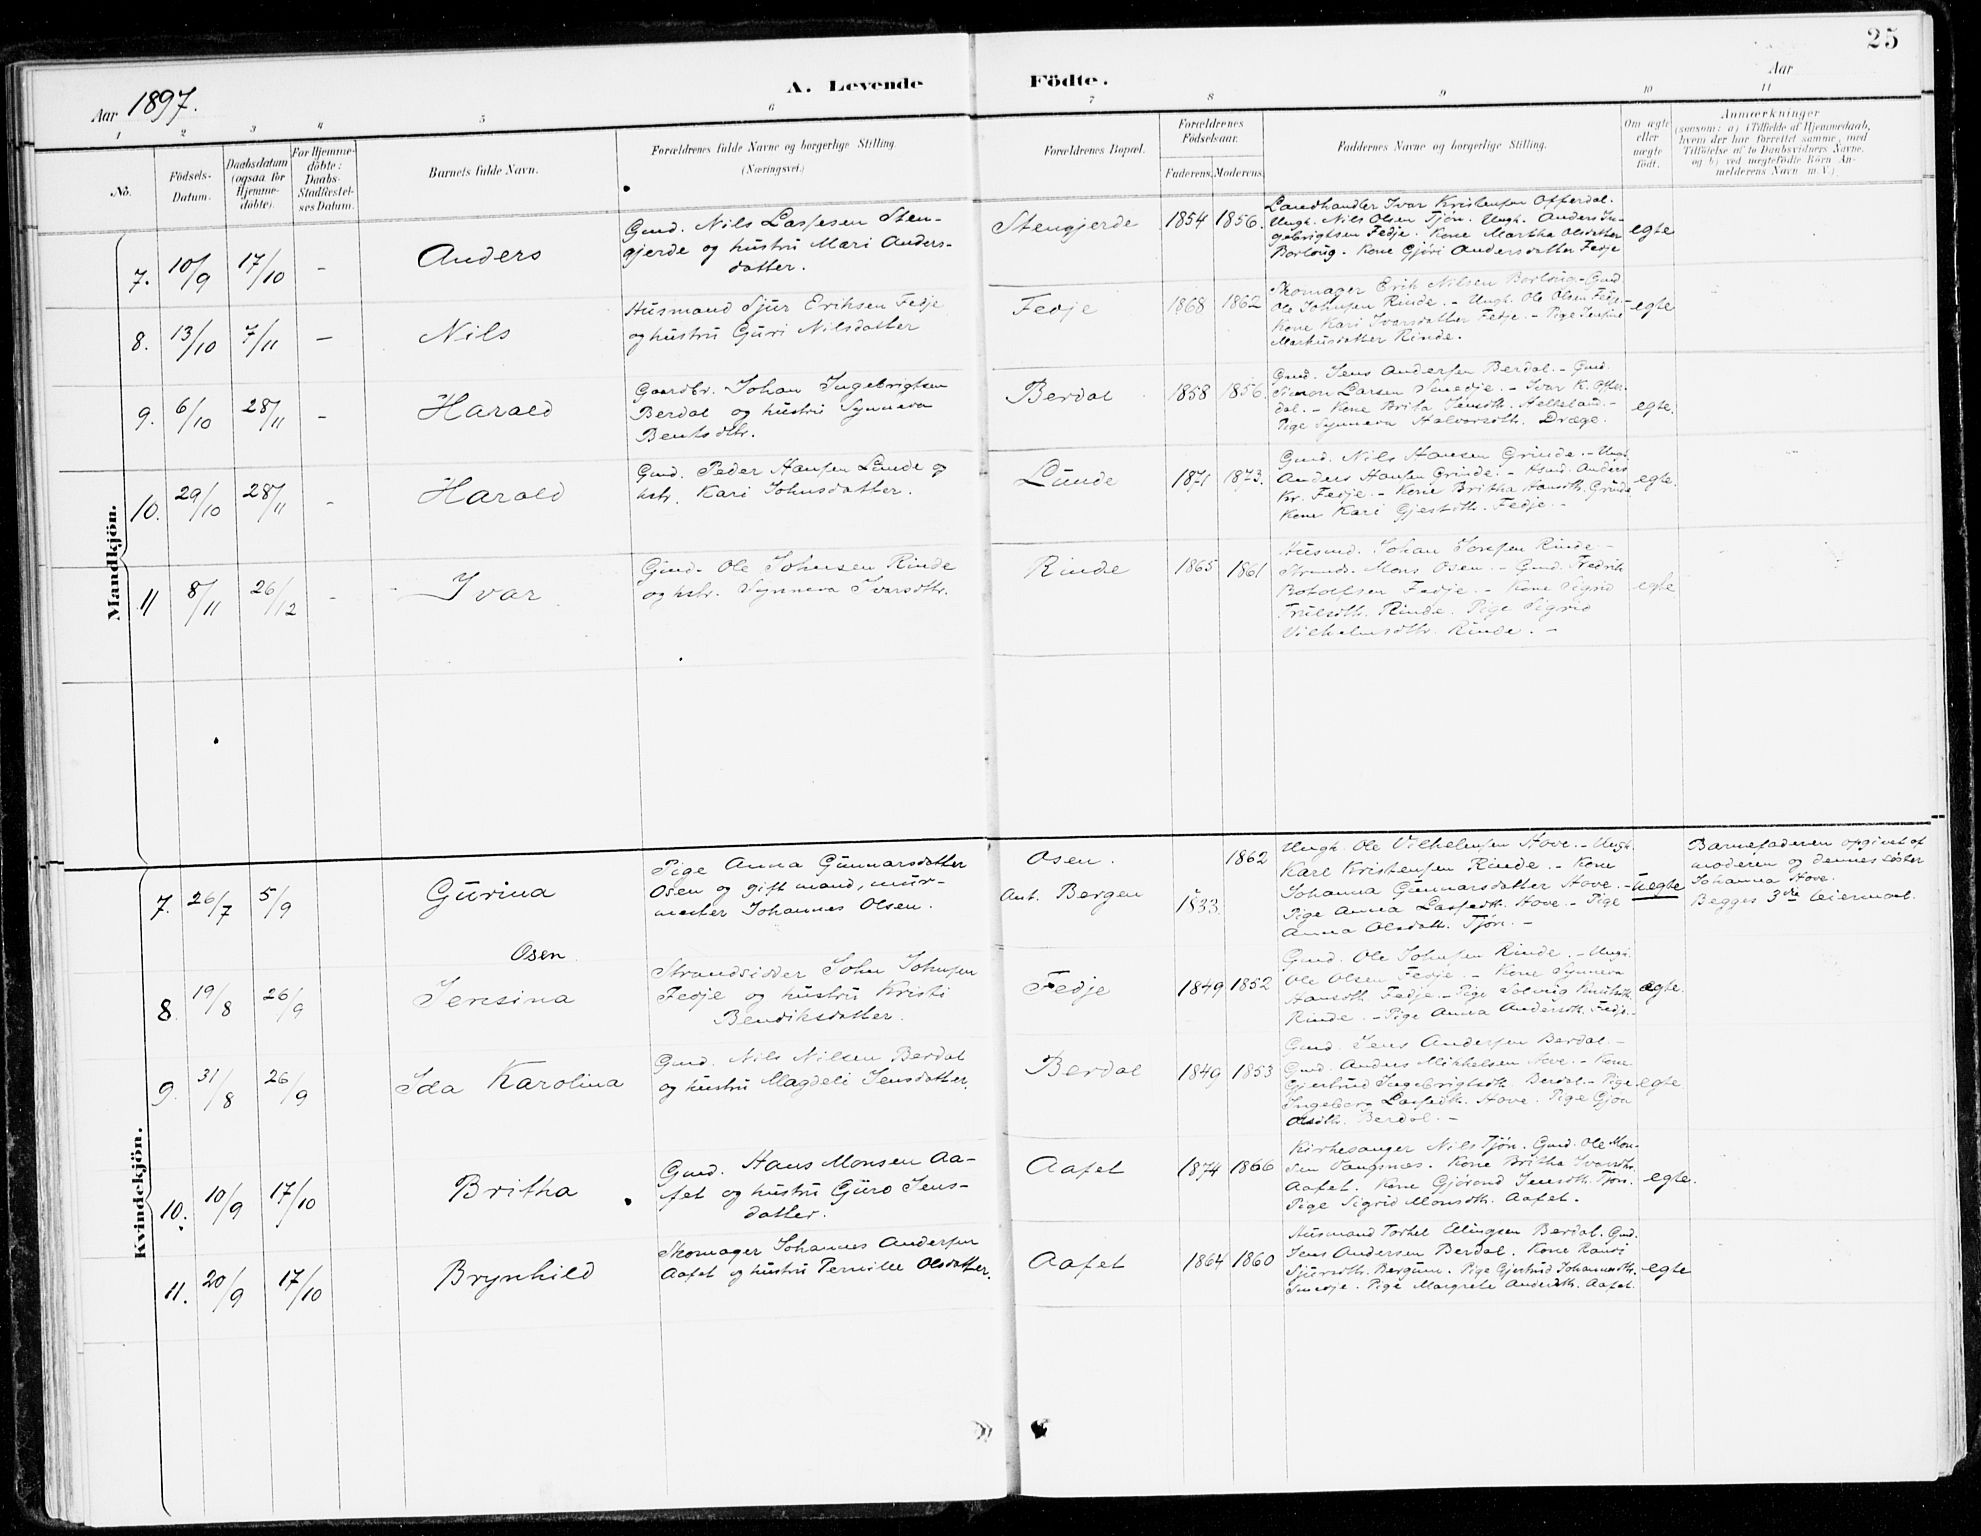 25
Aar 1897.
A. Levende Födte.
Aar
1 2 3 4 5 6 7 8 9 10 11
No.
Födsels-
Datum.
Daabsdatum
(ogsaa for
Hjemme-
döbte).
For Hjemme-
döbte:
Daabs-
Stadfæstel-
ses Datum.
Barnets fulde Navn.
Forældrenes fulde Navne og borgerlige Stilling.
(Næringsvei.)
Forældrenes Bopæl.
Forældrenes
Födselsaar.
Faderens. Moderens.
Faddernes Navne og borgerlige Stilling.
Om ægte
eller
uægte
födt.
Anmærkninger
(saasom: a) i Tilfælde af Hjemmedaab,
hvem der har forrettet samme, med
Tilföielse af to Daabsvidners Navne,
og b) ved uægtefödte Börn An-
melderens Navn m. V.)
Mandkjön.
7. 10/9 17/10 - Anders
Gmd. Nils Lassesen Sten-
gjerde og hustru Mari Anders-
datter.
Stengjerde 1854 1856.
Landhandler Ivar Kristensen Offerdal.
Ungk. Nils Olsen Tjøn. Ungk. Anders In-
gebrigtsen Fedje. Kone Martha Olsdatter
Borlaug. Kone Gjöri Andersdatter Fedje
egte
8. 13/10 7/11 - Nils
Husmand Sjur Eriksen Fedje
og hustru Guri Nilsdatter
Fedje 1868 1862
Skomager Erik Nilsen Borlaug - Gmd
Ole Johnsen Rinde. - Ungk. Ole Olsen Fedje -
Kone Kari Ivarsdatter Fedje. - Pige Jensine
Markusdatter Rinde.
egte
9. 6/10 28/11 - Harald
Gaardbr. Johan Ingebrigtsen
Berdal og hustru Synneva
Bentsdtr.
Berdal 1858 1856.
Gmd. Jens Andersen Berdal. - Gmd.
Simon Larsen Smedje. - Ivar K. Offer-
dal. - Kone Brita Jensdtr. Helleland -
Pige Synneva Halvorsdtr. Dræge.
egte.
10. 29/10 28/11 - Harald
Gmd. Peder Hansen Lunde og
hstr. Kari Johnsdatter.
Lunde 1871 1873.
Gmd. Nils Hansen Grinde. - Ungk.
Anders Hansen Grinde. - Hsmd. Anders
Kr. Fedje. - Kone Britha Hansdtr. Grinde
Kone Kari Gjestsdtr. Fedje. -
egte.
11 8/11 26/12 - Ivar
Gmd. Ole Johnsen Rinde
og hstr. Synneva Ivarsdtr.
Rinde 1865 1861
Husmd. Johan Josefsen Rinde -
Strands. Mons Osen. - Gmd. Fredrik
Botolfsen Fedje. - Kone Sigrid
Trulsdtr. Rinde. Pige Sigrid
Vilhelmsdtr. Rinde. -
egte
Kvindekjön.
7. 26/7 5/9 Gurina
Osen
Pige Anna Gunnarsdatter
Osen og gift mand, mur-
mester Johannes Olsen.
Osen. 1862
Ant. Bergen 1833.
Ungk. Ole Vilhelmsen Hove. - Ungk.
Karl Kristensen Rinde. - Kone
Johanna Gunnarsdatter Hove. -
Pige Anna Lassedtr. Hove. - Pige
Anna Olsdatr. Tjøn. -
uegte
Barnefaderen opgivet af
moderen og dennes søster
Johanna Hove.
Begges 3die leiermaal.
8. 19/8 26/9 Jensina
Strandsidder John Johnsen
Fedje og hustru Kristi
Bendiksdatter.
Fedje 1849 1852
Gmd. Ole Johnsen Rinde. - Ungk.
Ole Olsen Fedje - Kone Synneva
Hansdtr. Fedje. - Pige Solveig Knutsdtr.
Rinde. - Pige Anna Andersdtr. Fedje. -
egte.
9. 31/8 26/9 Ida Karolina
Gmd. Nils Nilsen Berdal
og hustru Magdeli Jensdatter.
Berdal 1849 1853
Gmd. Jens Andersen Berdal. -
Gmd. Anders Mikkelsen Hove. - Kone
Gjertrud Ingebrigtsdtr. Berdal. - Pige
Ingeborg Lassedtr. Hove. Pige Gjøri
Olsdtr. Berdal. -
egte.
10. 10/9 17/10 Britha
Gmd. Hans Monsen Aa-
fet og hustru Guro Jens-
datter.
Aafet 1874 1866
Kirkesanger Nils Tjøn. Gmd. Ole Mon-
sen Tangsnes. Kone Britha Ivarsdtr.
Aafet. Kone Gjörond Jensdtr. Tjøn.
Pige Sigrid Monsdtr. Aafet.
egte.
11. 20/9 17/10 Brynhild
Skomager Johannes Andersen
Aafet og hustru Pernille Olsdatter.
Aafet 1864 1860
Husmand Torkel Ellingsen Berdal. Gmd.
Jens Andersen Berdal. Kone Randi
Sjursdtr. Bergum. Pige Gjertrud Johannesdtr.
Smedje. Pige Margrete Andersdtr. Aafet.
egte